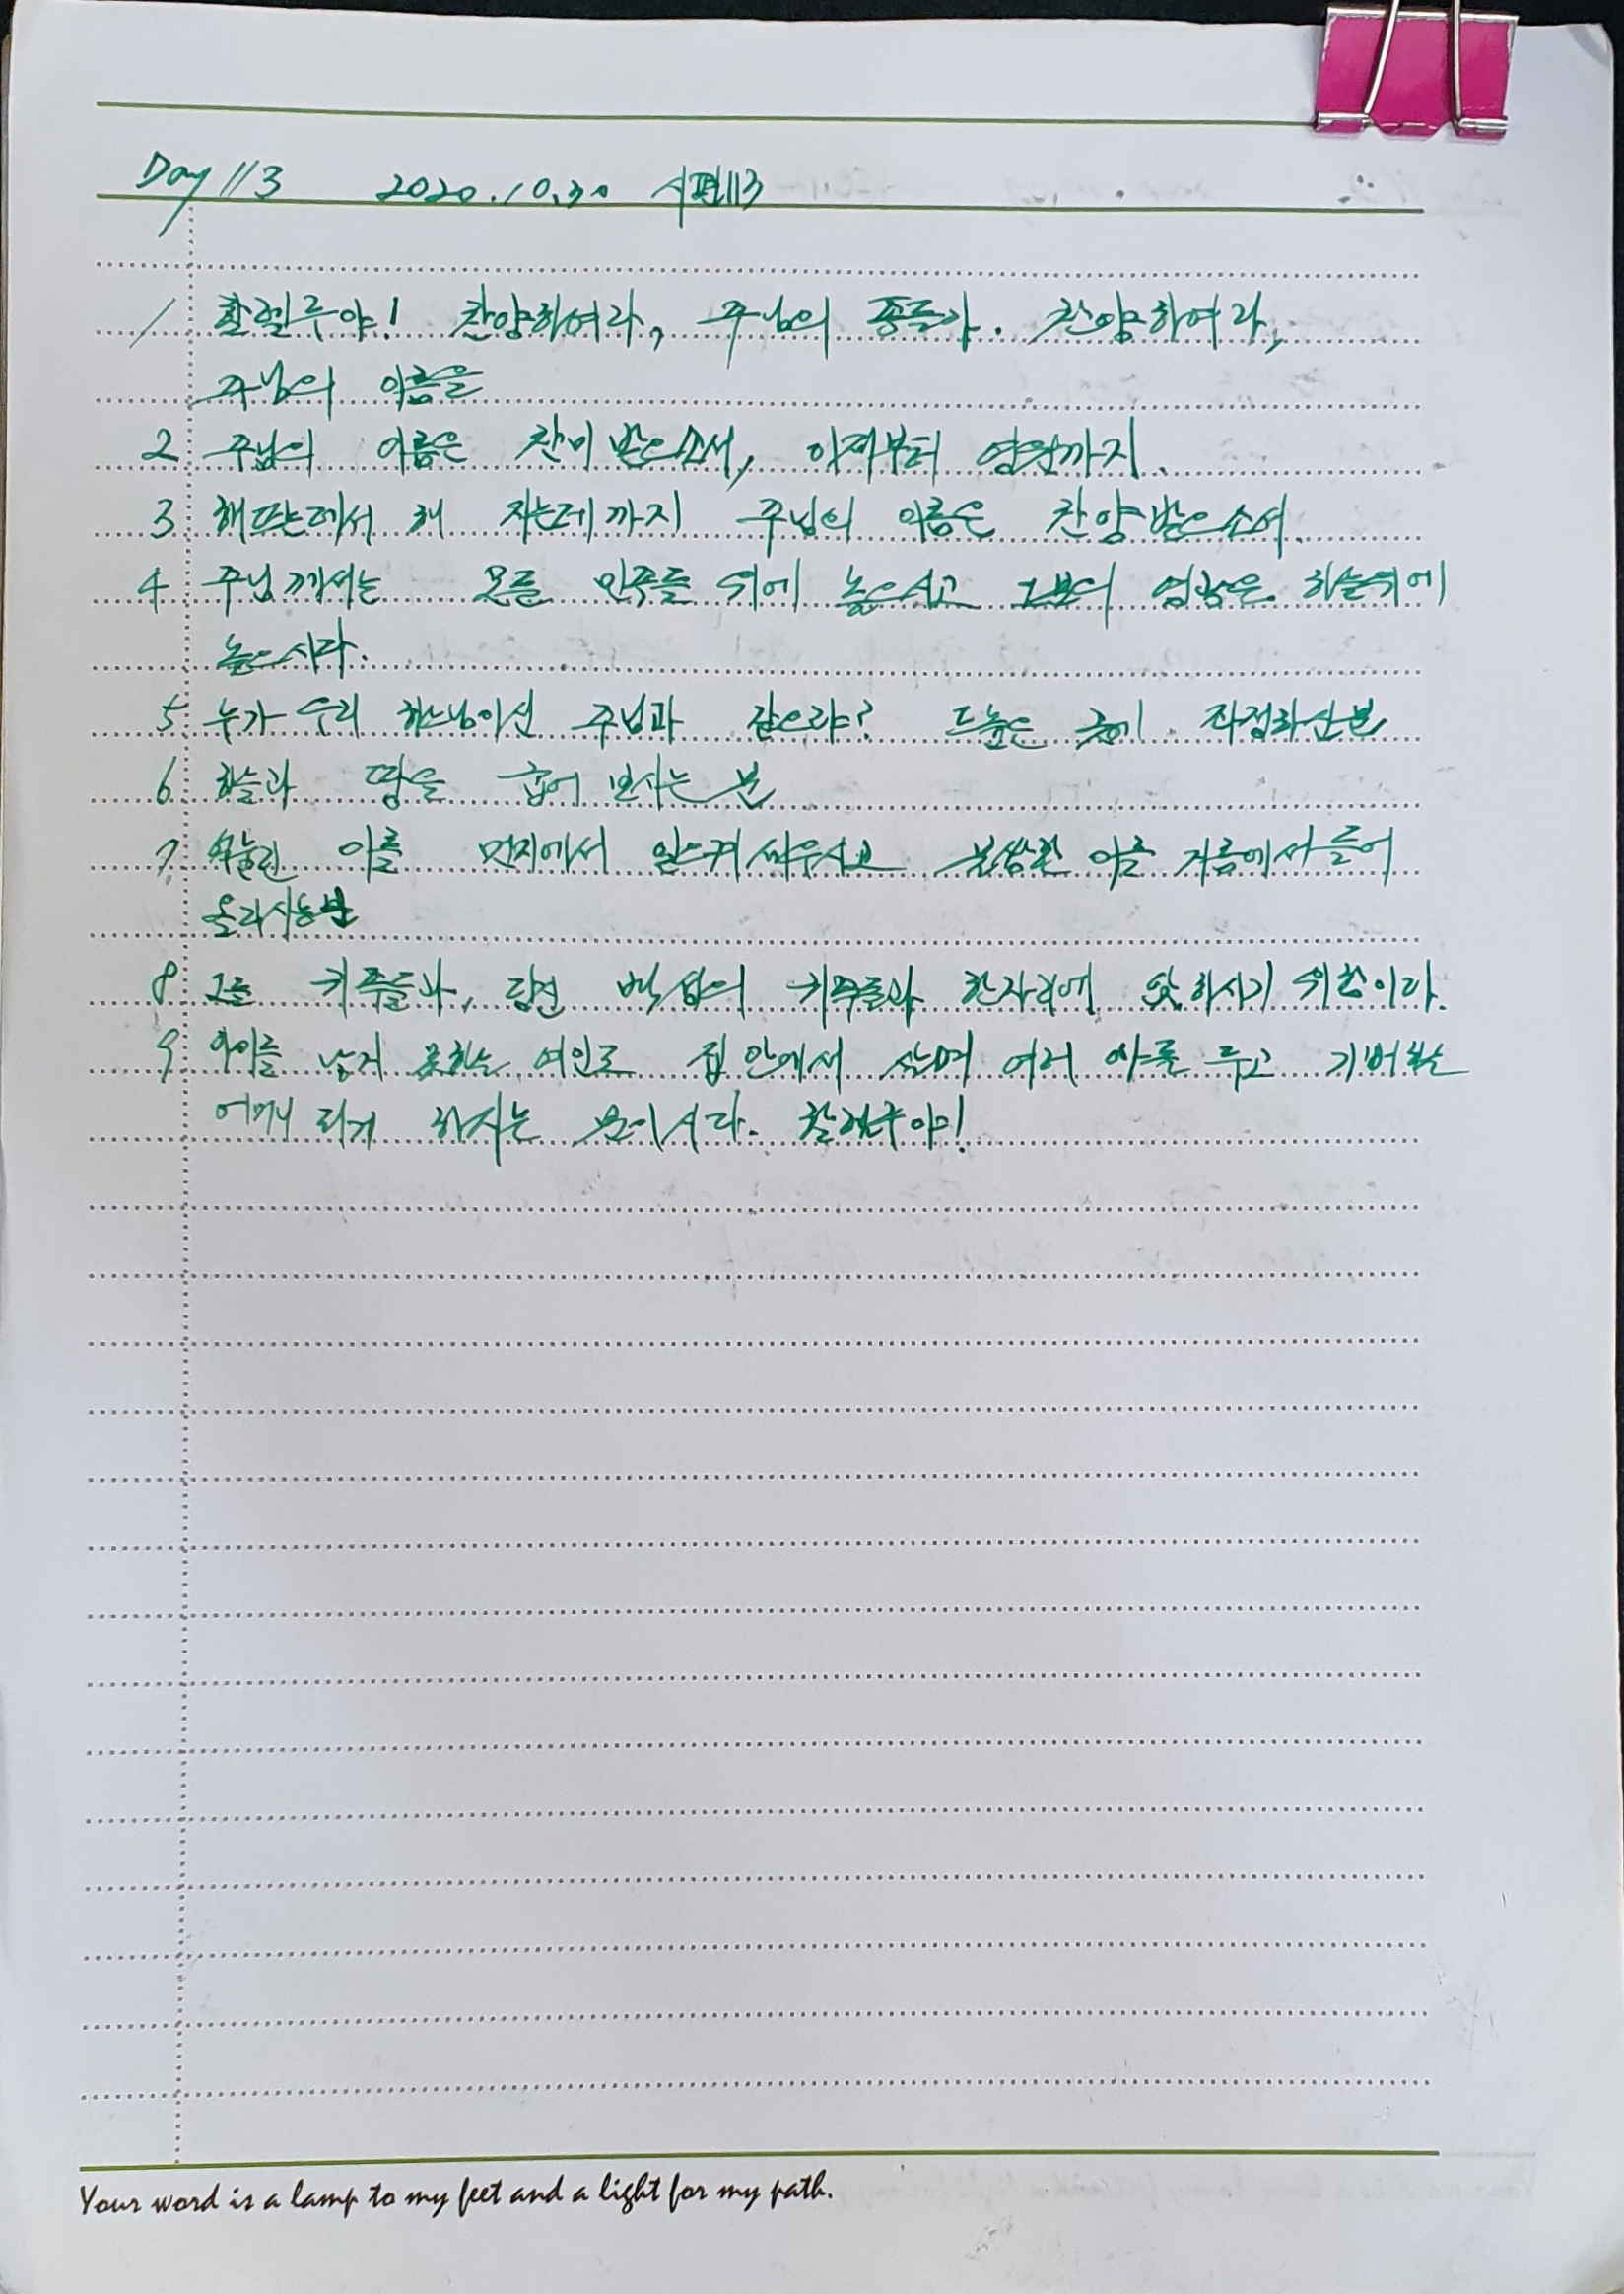 Day 113 2020.10.30 시편113
1 할렐루야! 찬양하여라, 주님의 종들아. 찬양하여라,
주님의 이름을
2 주님의 이름은 찬미받으소서, 이제부터 영원까지.
3 해뜨는데서 해 지는데까지 주님의 이름은 찬양받으소서.
4 주님께서는 모든 민족들 위에 높으시고 그분의 영광은 하늘위에
높으시다.
5 누가 우리 하느님이신 주님과 같으랴? 드높은 곳에 좌정하신분
6 하늘과 땅을 굽어 보시는 분
7 억눌린 이를 먼지에서 일으켜세우시고 불쌍한 이를 거름에서들어
올리시는분
8 그를 귀족들과, 당신 백성의 귀족들과 한자리에 앉히시기 위함이다.
9 아이를 낳지 못하는 여인도 집안에서 살며 여러 아들 두고 기뻐하는
어머니 되게 하시는 분이시다. 할렐루야!
Your word is a lamp to my feet and a light for my path.